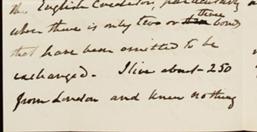 the English Creditor, particularly
where there is only two or three bond
that have been omitted to be
exchanged. I live about 250
from London and knew nothing